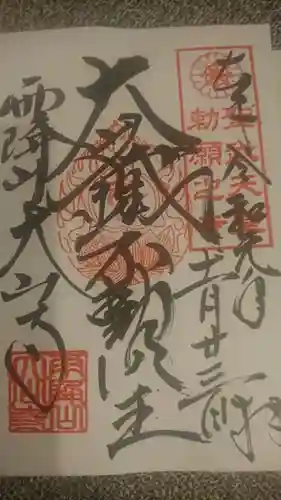 奉
令和元年
十一月廿三日
拝
聖武天皇
勅願之寺
大鐵不動明王
雨降山大山寺